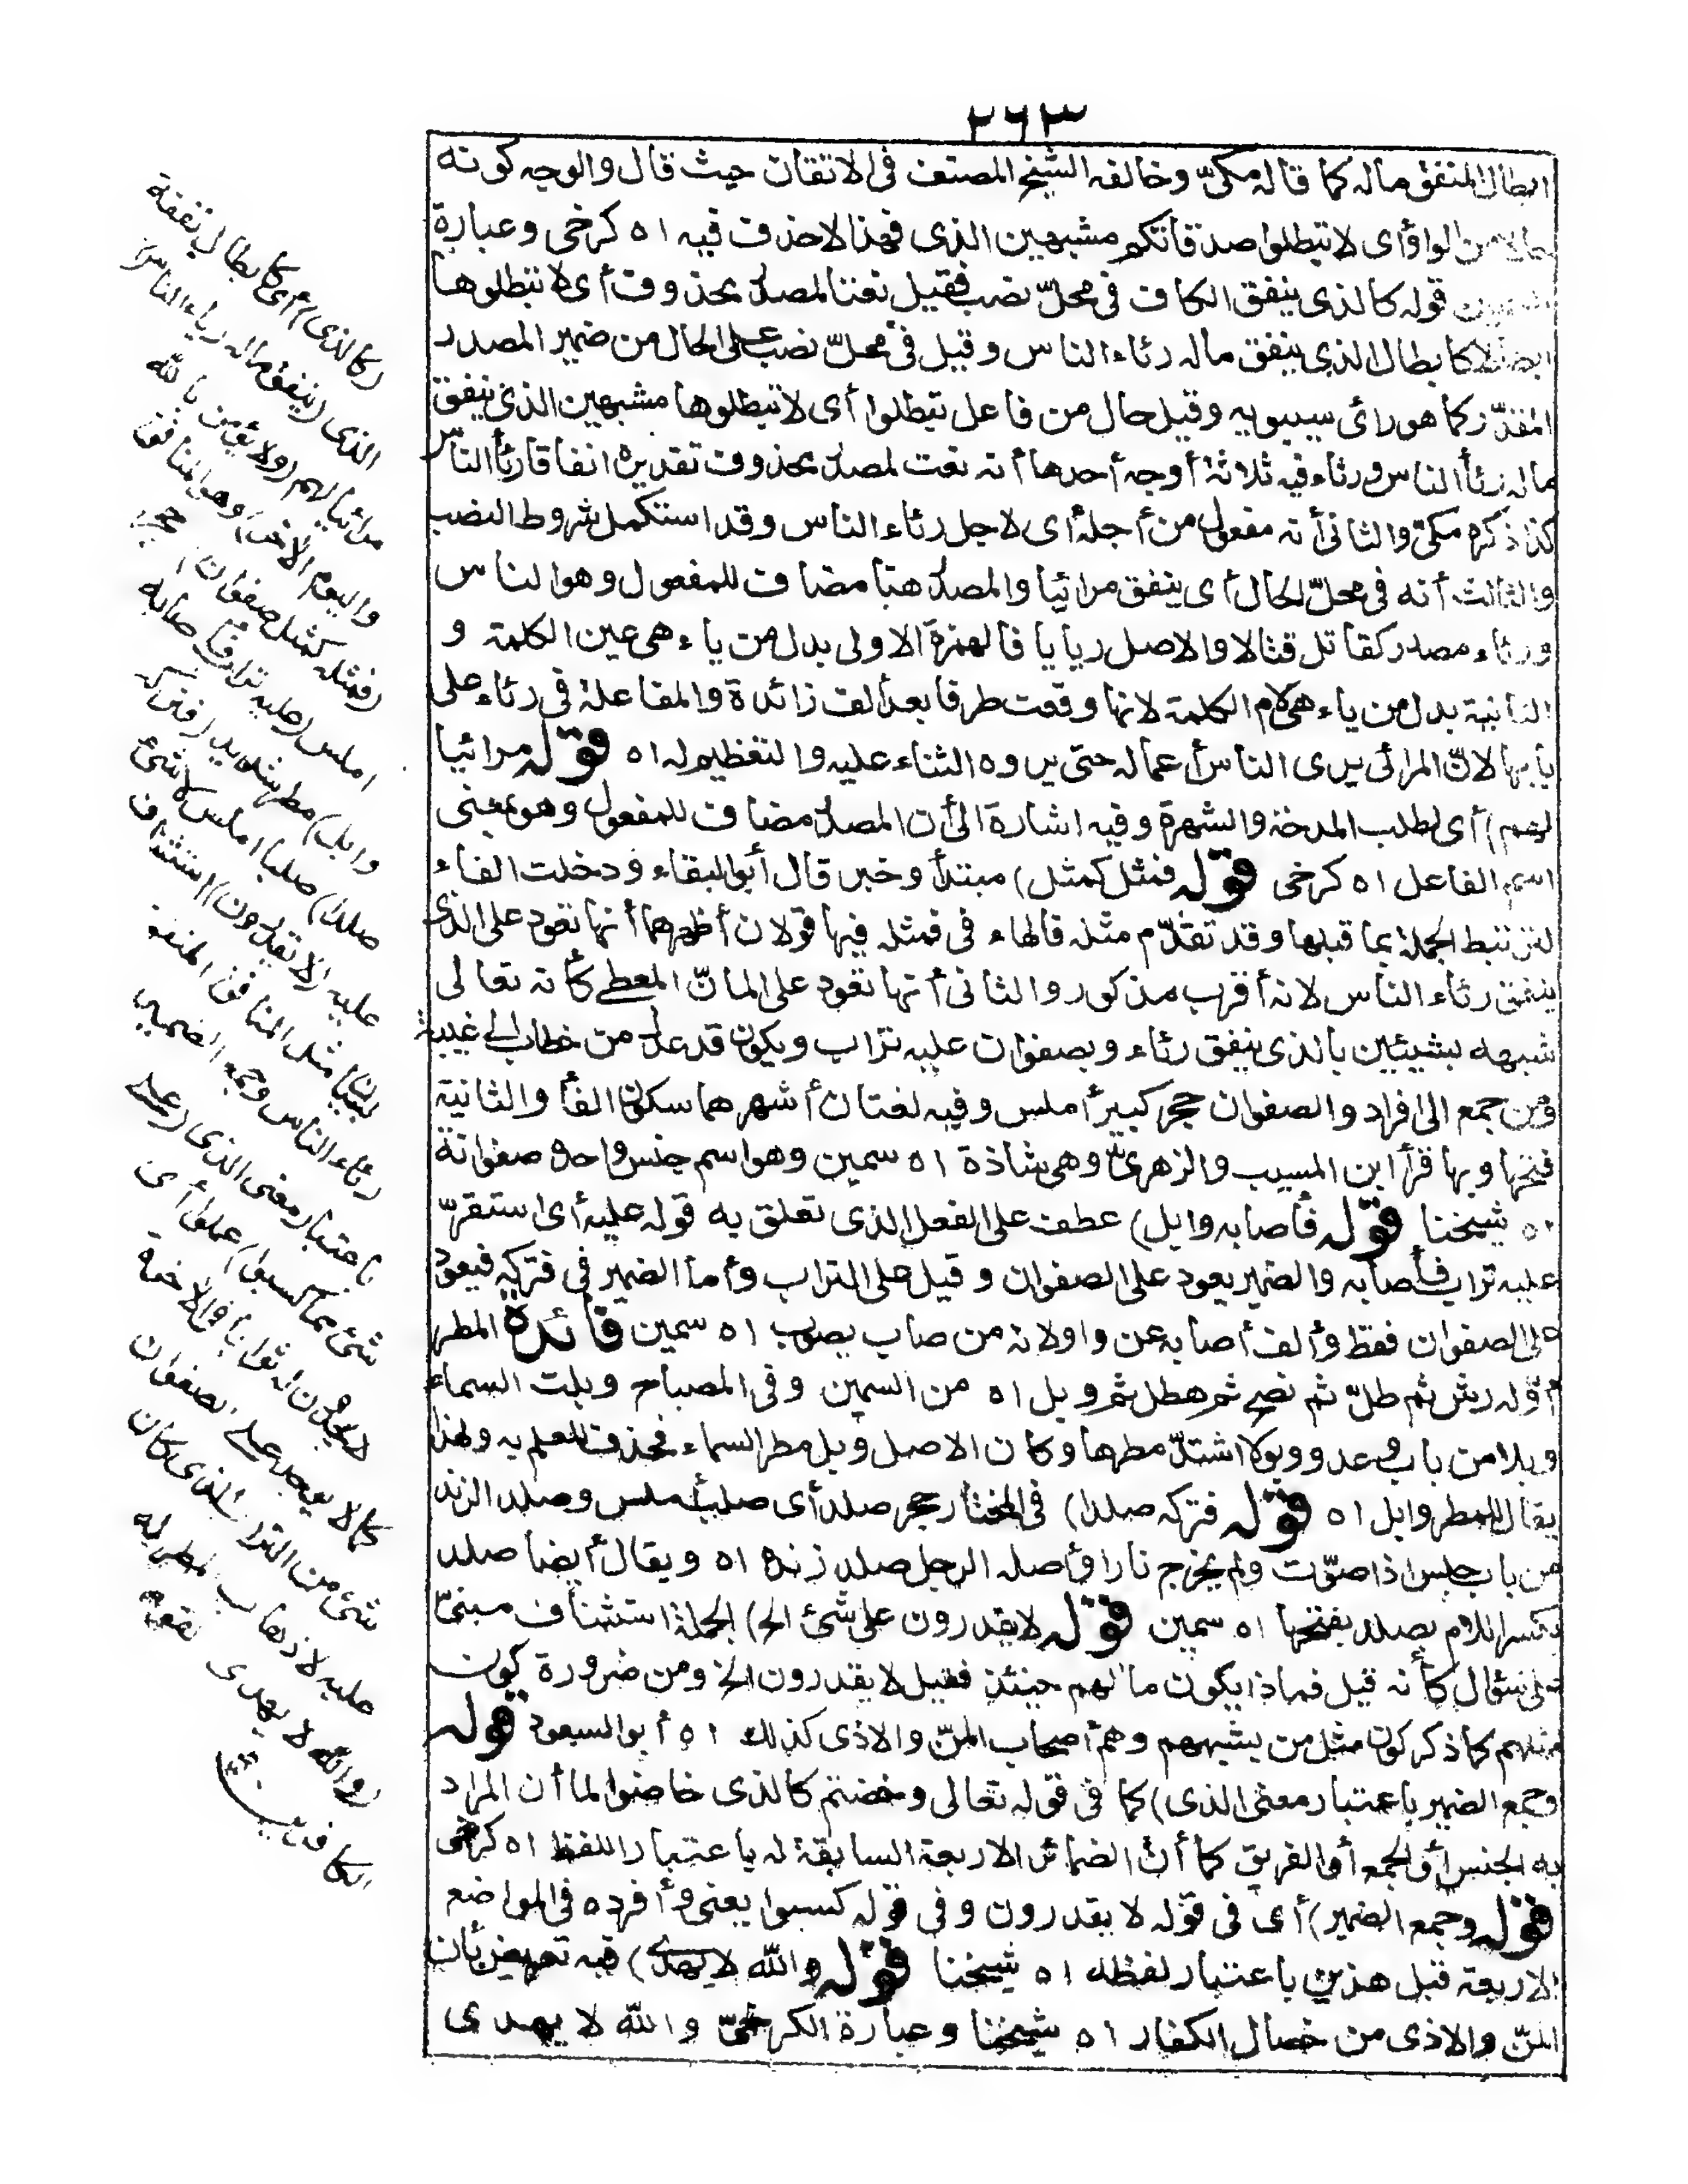 ٢٦٣
ابطال المنفق ماله كما قاله مكيّ وخالفه الشيخ المصنف فى الاتقان حيث قال والوجه كونه
حالا من الواو أى لا تبطلوا صدقاتكم مشبهين الذى فهذا لا حذف فيه اه كرخى وعبارة
قوله كالذى ينفق الكاف فى محلّ نصب فقيل نعتا لمصدر محذوف أى لا تبطلوها
ابطالا كابطال الذى ينفق ماله رئاء الناس وقيل فى محلّ نصب على الحال من ضمير المصدر
المقدّر كما هو رأى سيبويه وقيل حال من فاعل تبطلوا أى لا تبطلوها مشبهين الذى ينفق
ماله رئاء الناس ورئاء فيه ثلاثة أوجه أحدها أنه نعت لمصدر محذوف تقديره انفاقا رئاء الناس
كذا ذكره مكيّ والثانى أنه مفعول من أجله أى لاجل رئاء الناس وقد استكمل شروط النصب
والثالث أنه فى محلّ الحال أى ينفق مرائيا والمصدر هنا مضاف للمفعول وهو الناس
ورئاء مصدر كقاتل قتالا والاصل ريايا فالهمزة الاولى بدل من ياء هى عين الكلمة و
الثانية بدل من ياء هى لام الكلمة لانها وقعت طرفا بعد ألف زائدة والمفاعلة فى رئاء على
بابها لانّ المرائى يرى الناس أعماله حتى يروه الثناء عليه والتعظيم له اه قوله مرائيا
لهم) أى لطلب المدحة والشهرة وفيه اشارة الى أن المصدر مضاف للمفعول وهو بمعنى
اسم الفاعل اه كرخى قوله فمثله كمثل) مبتدأ وخبر قال أبو البقاء ودخلت الفاء
لتربط الجملة بما قبلها وقد تقدّم مثله فالهاء فى فمثله فيها قولان أظهرهما أنها تعود على الذى
ينفق رئاء الناس لانه أقرب مذكور والثانى أنها تعود على المانّ المعطى كأنه تعالى
شبهه بشيئين بالذى ينفق رئاء وبصفوان عليه تراب ويكون قد عدل من خطاب الى غيبة
ومن جمع الى افراد والصفوان حجر كبير أملس وفيه لغتان أشهرهما سكون الفاء والثانية
فتحها وبها قرأ ابن المسيب والزهرى وهى شاذة اه سمين وهو اسم جنس واحده صفوانة
اه شيخنا قوله فأصابه وابل) عطف على الفعل الذى تعلق به قوله عليه أى استقرّ
عليه تراب فأصابه والضمير يعود على الصفوان وقيل على التراب وأما الضمير فى فتركه فيعود
على الصفوان فقط وألف أصابه عن واو لانه من صاب يصوب اه سمين فائدة المطر
أوّله رش ثم طلّ ثم نضح ثم هطل ثم وبل اه من السمين وفى المصباح وبلت السماء
وبلا من باب وعد ووبولا اشتدّ مطرها وكان الاصل وبل مطر السماء فحذف للعلم به ولهذا
يقال للمطر وابل اه قوله فتركه صلدا) فى المختار حجر صلد أى صلب أملس وصلد الزند
من باب جلس اذا صوّت ولم يخرج نارا وأصله الرجل صلد زنده اه ويقال أيضا صلد
بكسر اللام يصلد بفتحها اه سمين قوله لا يقدرون على شئ الخ) الجملة استئناف مبنىّ
على سؤال كأنه قيل فماذا يكون مالهم حينئذ فقيل لا يقدرون الخ ومن ضرورة كون
مثلهم كما ذكر كون مثل من يشبههم وهم أصحاب المنّ والاذى كذلك اه أبو السعود قوله
وجمع الضمير باعتبار معنى الذى) كما فى قوله تعالى وخضتم كالذى خاضوا لما أن المراد
به الجنس أو الجمع أو الفريق كما أن الضمائر الاربعة السابقة له باعتبار اللفظ اه كرخى
قوله وجمع الضمير) أى فى قوله لا يقدرون وفى قوله كسبوا يعنى وأفرده فى المواضع
الاربعة قبل هذين باعتبار لفظه اه شيخنا قوله والله لا يهدى) فيه تعريض بأن
المنّ والاذى من خصال الكفار اه شيخنا وعبارة الكرخىّ والله لا يهدى
(كالذى) أى كابطال نفقة
الذى (ينفق ماله رياء الناس)
مرائيا لهم (ولا يؤمن بالله
واليوم الآخر) وهو المنافق
(فمثله كمثل صفوان) حجر
املس (عليه تراب فأصابه
وابل) مطر شديد (فتركه
صلدا) صلبا املس لا شئ
عليه (لا يقدرون) استئناف
لبيان مثل المنافق المنفق
رئاء الناس وجمع الضمير
باعتبار معنى الذى (على
شئ مما كسبوا) عملوا أى
لا يجدون له ثوابا فى الآخرة
كما لا يوجد على الصفوان
شئ من التراب الذى كان
عليه لاذهاب المطر له
(والله لا يهدى
الكافرين)